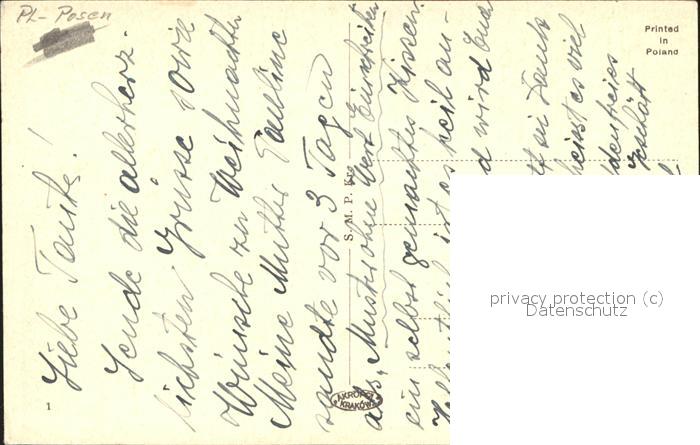 Pl-Posen
Printed
in
Poland
Liebe Tante!
Sende die allerherz-
lichsten Grüsse sowie
Wünsche zu Weihnachten
Meine Mutter Pauline
sandte vor 3 Tagen
als "Muster ohne Wert Einschreiben
ein selbst gemachtes Kissen
ist es heil an-
wird
sei Dank
es viel
S. M. P. Kr.
AKROPOL
KRAKÓW
1
privacy protection (c)
Datenschutz